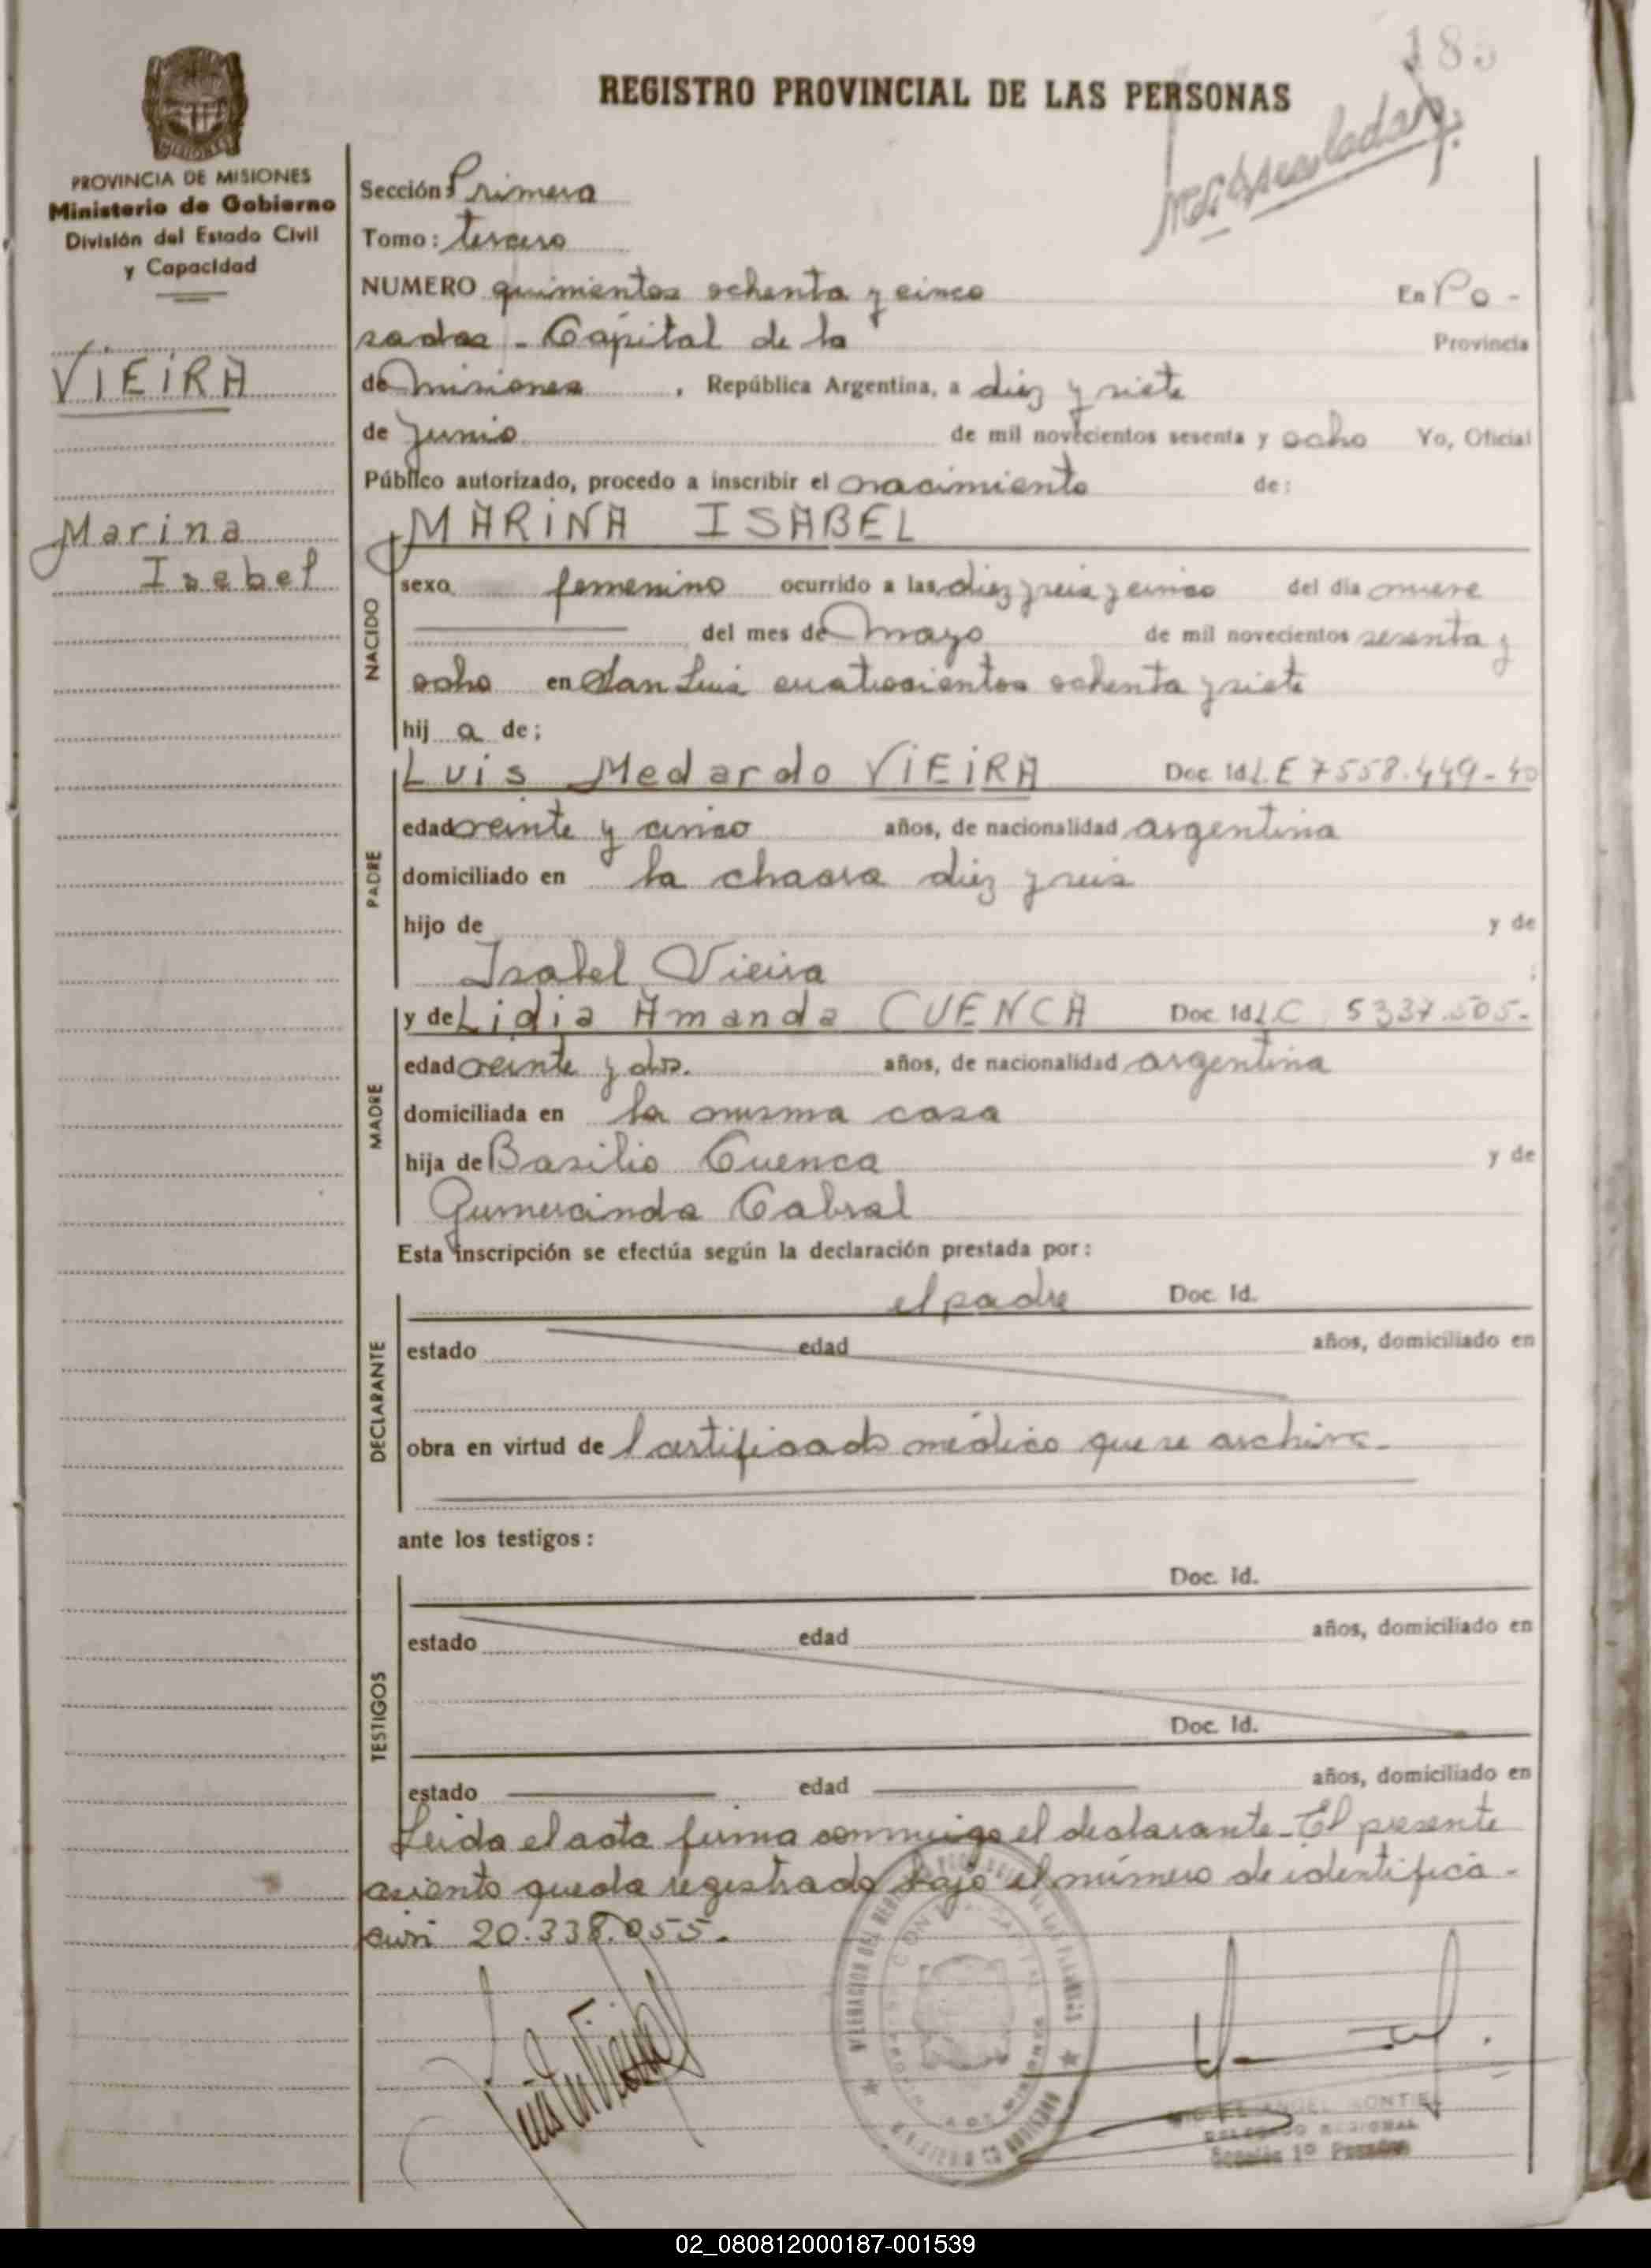 185
REGISTRO PROVINCIAL DE LAS PERSONAS
PROVINCIA DE MISIONES
Ministerio de Gobierno
División del Estado Civil
y Capacidad
VIEIRA
Marina
Isabel
Sección: Primera
Tomo: tercero
NUMERO quinientos ochenta y cinco En Po-
sadas - Capital de la Provincia
de Misiones, República Argentina, a diez y siete
de Junio de mil novecientos sesenta y ocho Yo, Oficial
Público autorizado, procedo a inscribir el nacimiento de:
MARINA ISABEL
NACIDO
sexo femenino ocurrido a las diez y seis y cinco del día nueve
del mes de Mayo de mil novecientos sesenta y
ocho en San Luis cuatrocientos ochenta y siete
hij a de;
PADRE
Luis Medardo VIEIRA Doc. Id. L.E 7558.449-40
edad veinte y cinco años, de nacionalidad argentina
domiciliado en la chacra diez y seis
hijo de y de
Isabel Vieira ;
MADRE
y de Lidia Amanda CUENCA Doc. Id. L.C 5337.505-
edad veinte y dos. años, de nacionalidad argentina
domiciliada en la misma casa
hija de Basilio Cuenca y de
Gumercinda Cabral
Esta inscripción se efectúa según la declaración prestada por:
DECLARANTE
el padre Doc. Id.
estado edad años, domiciliado en
obra en virtud de certificado médico que se archiva-
ante los testigos:
TESTIGOS
Doc. Id.
estado edad años, domiciliado en
Doc. Id.
estado edad años, domiciliado en
Leida el acta firma conmigo el declarante - El presente
asiento queda registrado bajo el número de identifica-
ción 20.338.055.
MIGUEL ANGEL MONTIEL
DELEGADO REGIONAL
Sección 1º Posadas
02_080812000187-001539